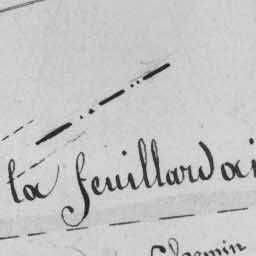 la feuillardai
Chemin